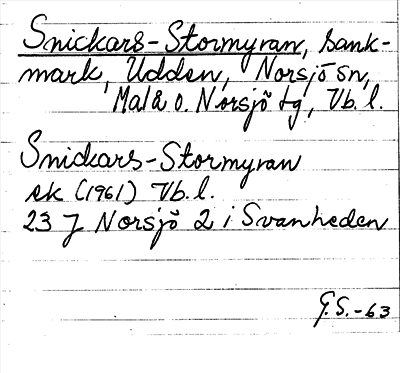 Snickars-Stormyran, sank-
mark, Udden, Norsjö sn,
Malå o. Norsjö tg, Vb. l.
Snickars-Stormyran
ek (1961) Vb. l.
23 J Norsjö 2 i Svanheden
G.S.-63